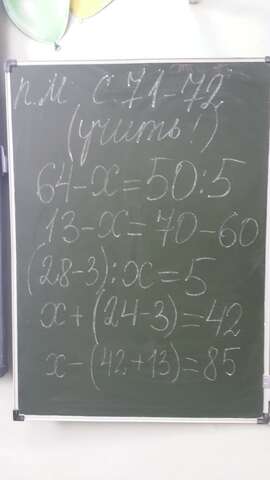 п.м. с. 71-72
(учить!)
64-x=50:5
13-x=70-60
(28-3):x=5
x+(24-3)=42
x-(42+13)=85